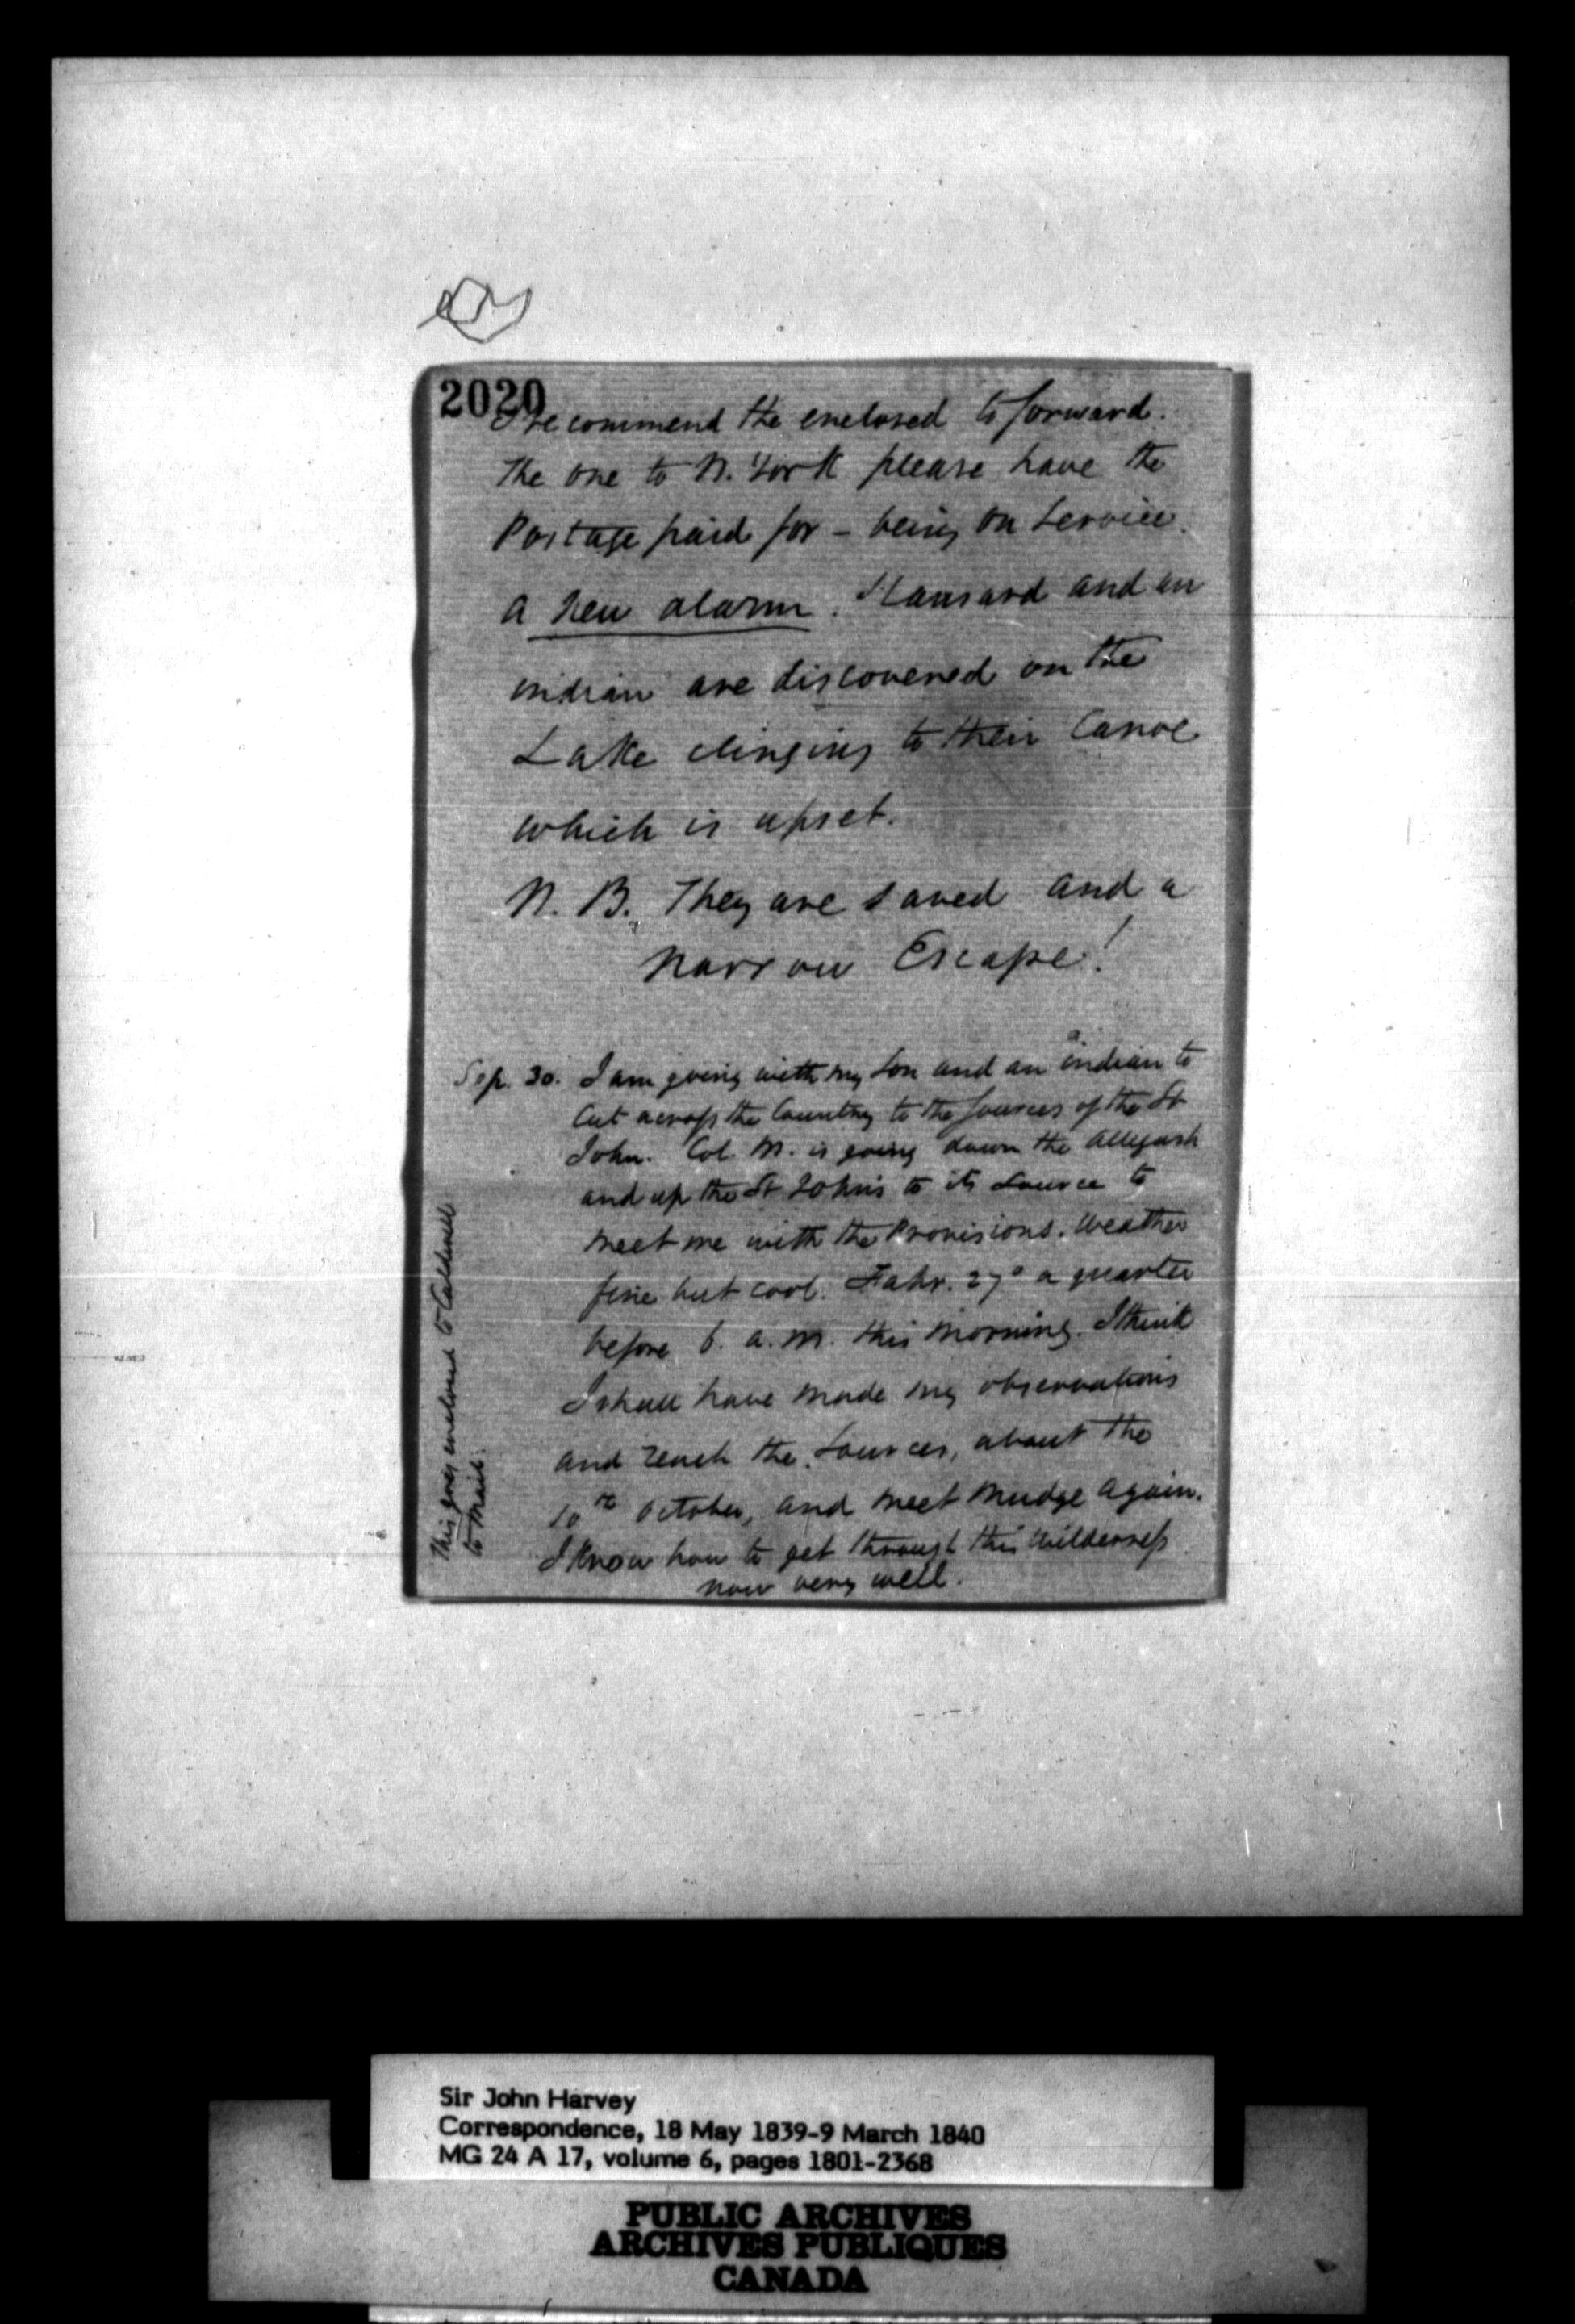 2020
I recommend the enclosed to forward.
The one to N. York please have the
Postage paid for – being on Service.
A new alarm. Hansard and an
indian are discovered on the
Lake clinging to their Canoe
which is upset.
N. B. They are saved and a
narrow Escape!
Sep. 30. I am going with my Son and an indian to
cut across the Country to the Sources of the St
John. Col. M. is going down the Allegash
and up the St John's to its Source to
meet me with the Provisions. Weather
fine but cool. Fahr. 27° a quarter
before 6. a. m. this morning. I think
I shall have made my observations
and reach the Sources, about the
10th October, and meet Mudge again.
I know how to get through this Wilderness
now very well.
This goes enclosed to Caldwell
to Mail.
Sir John Harvey
Correspondence, 18 May 1839-9 March 1840
MG 24 A 17, volume 6, pages 1801-2368
PUBLIC ARCHIVES
ARCHIVES PUBLIQUES
CANADA